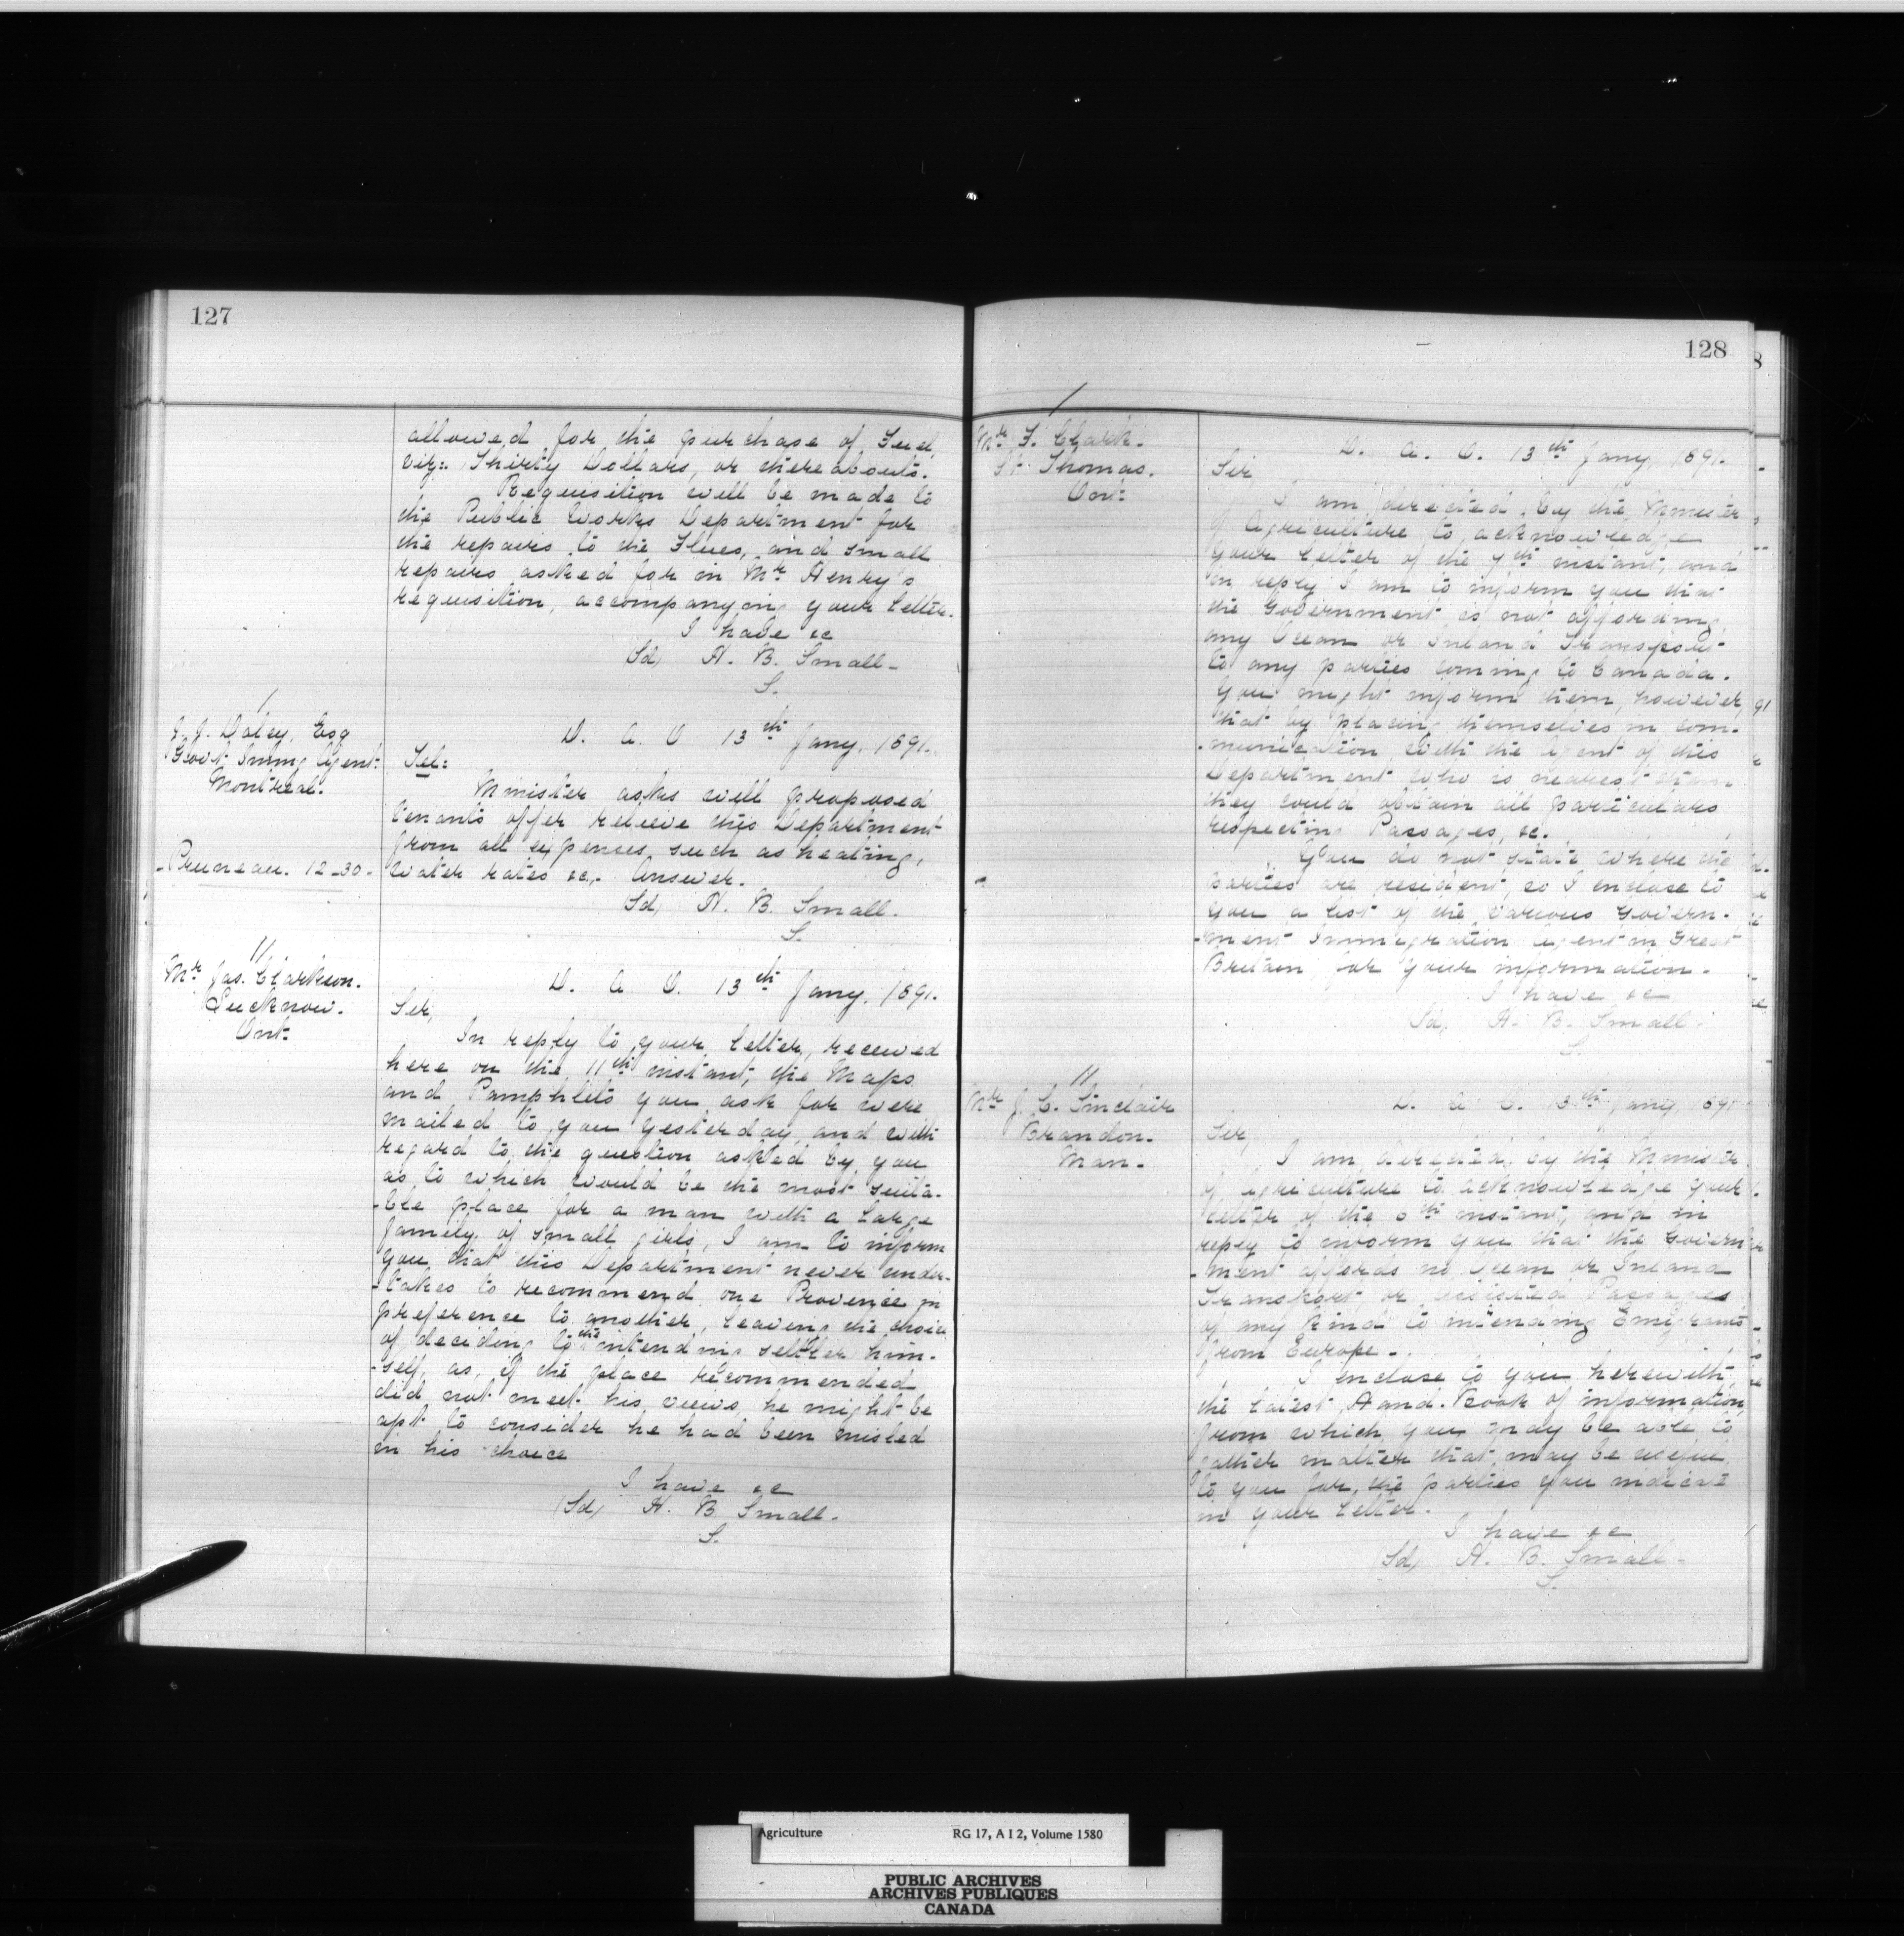 127
allowed for the purchase of Fuel,
viz:- Thirty Dollars, or thereabouts.
Requisition will be made to
the Public Works Department for
the repairs to the Flues, and small
repairs asked for in Mr Henry's
requisition, accompanying your letter.
I have &c
(Sd) H. B. Small-
S.
/
J. J. Daley, Esq
Govt. Immg Agent.
Montreal.
D. A. O. 13th Jany, 1891.
Tel:
Minister asks will proposed
tenants offer relieve this Department
from all expenses such as heating,
water rates &c,. Answer.
-Pruneau. 12-30-
Sd) H. B. Small.
S.
//
Mr Jas. Clarkson.
Lucknow.
Ont.
D. A. O. 13th Jany, 1891.
Sir,
In reply to your letter, received
here on the 11th instant, the Maps
and Pamphlets you ask for were
mailed to you yesterday, and with
regard to the question asked by you
as to which would be the most suita-
-ble place for a man with a large
family of small girls, I am to inform
you that this Department never under-
-takes to recommend one Province in
preference to another, leaving the choice
of deciding to the intending settler him-
-self, as, if the place recommended
did not meet his views, he might be
apt to consider he had been misled
in his choice
I have &c
(Sd) H. B. Small.
S.
128
/
Mr F. Clark.
St. Thomas.
Ont.
D. A. O. 13th Jany, 1891.
Sir
I am directed by the Minister
of Agriculture to acknowledge
your letter of the 7th instant, and
in reply I am to inform you that
the Government is not affording
any Ocean or Inland Transport
to any parties coming to Canada.
You might inform them, however,
that by placing themselves in com-
-munication with the Agent of this
Department who is nearest them
they could obtain all particulars
respecting Passages, &c.
You do not state where the
parties are resident, so I enclose to
you a list of the various Govern-
-ment Immigration Agent in Great
Britain for your information.
I have &c
Sd, H. B. Small.
S.
//
Mr J. C. Sinclair
Brandon.
Man.
D. A. O. 13th Jany, 1891
Sir,
I am directed by the Minister
of Agriculture to acknowledge your
letter of the instant, and in
reply to inform you that the Govern
-ment affords no Ocean or Inland
Transport, or assisted Passages
of any kind to intending Emigrants
from Europe.
I enclose to you herewith
the latest Hand-Book of information,
from which you may be able to
gather matter that may be useful
to you for the parties you indicate
in your letter.
I have &c
(Sd) H. B. Small-
S.
Agriculture RG 17, A I 2, Volume 1580
PUBLIC ARCHIVES
ARCHIVES PUBLIQUES
CANADA